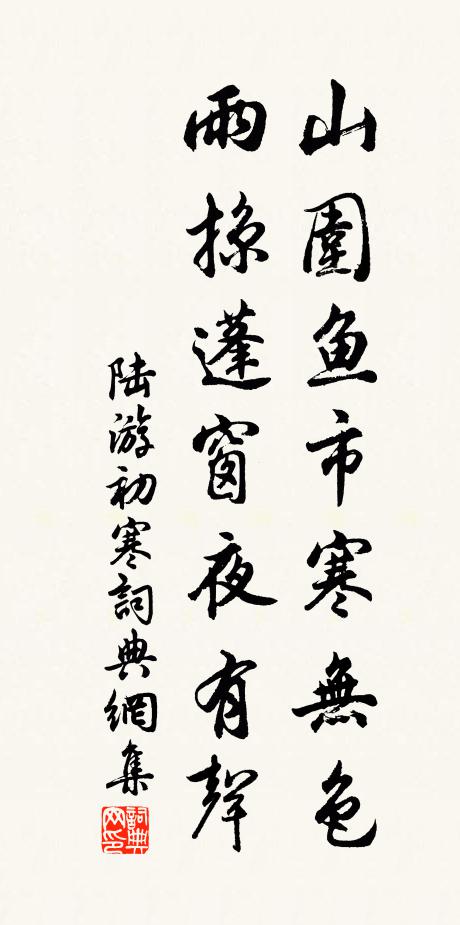 山圍魚市寒無色
雨掠蓬窗夜有聲
陸游初寒詞典網集
詞典网印